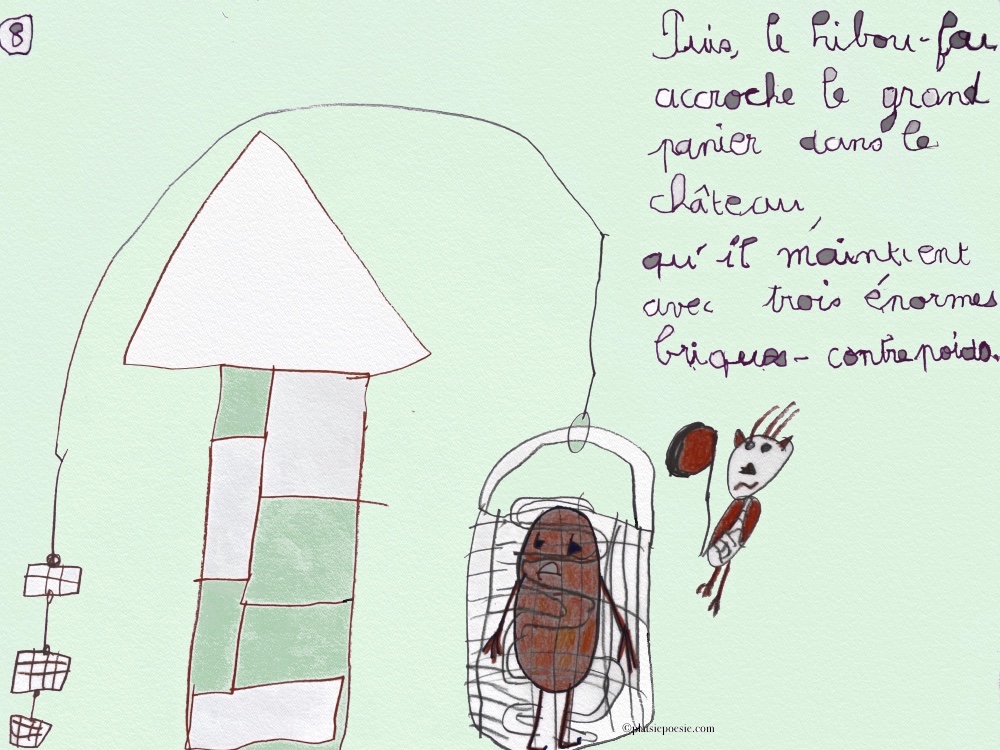 8
Puis, le hibou-fou
accroche le grand
panier dans le
château,
qu'il maintient
avec trois énormes
briques-contrepoids.
©plaisiepoesie.com